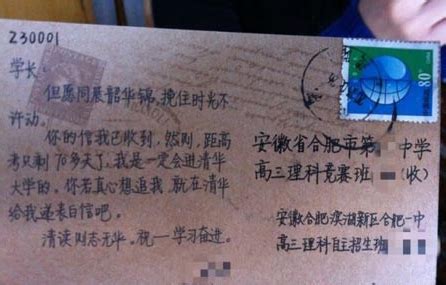 230001
学长:
但愿同展韶华锦,挽住时光不
许动。
你的信我已收到,然则,距高
考只剩70多天了,我是一定会进清华
大学的。你若真心想追我,就在清华
给我递表白信吧。
清读则志无华。祝一学习奋进。
80
安徽省合肥市第 中学
高三理科竞赛班 (收)
安徽合肥滨湖新区合肥一中
高三理科自主招生班